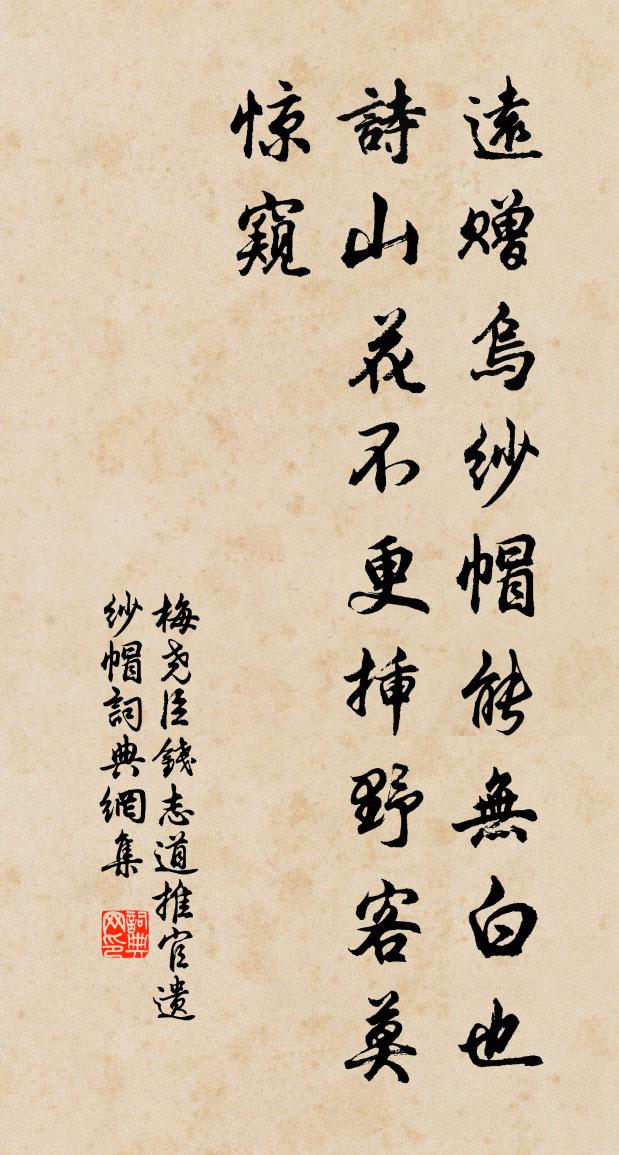 遠赠烏紗帽能無白也
詩山花不更挿野客莫
惊窺
梅尧臣錢志道推官遺
紗帽詞典網集
詞典网印